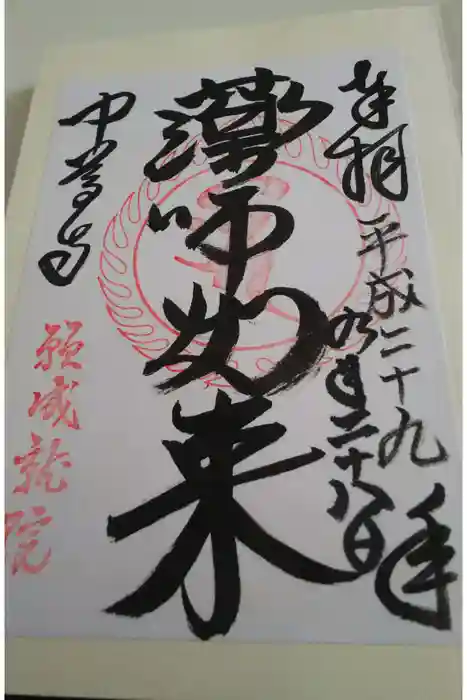 奉拝
平成二十九年
九月二十八日
薬師如来
中尊寺
願成就院